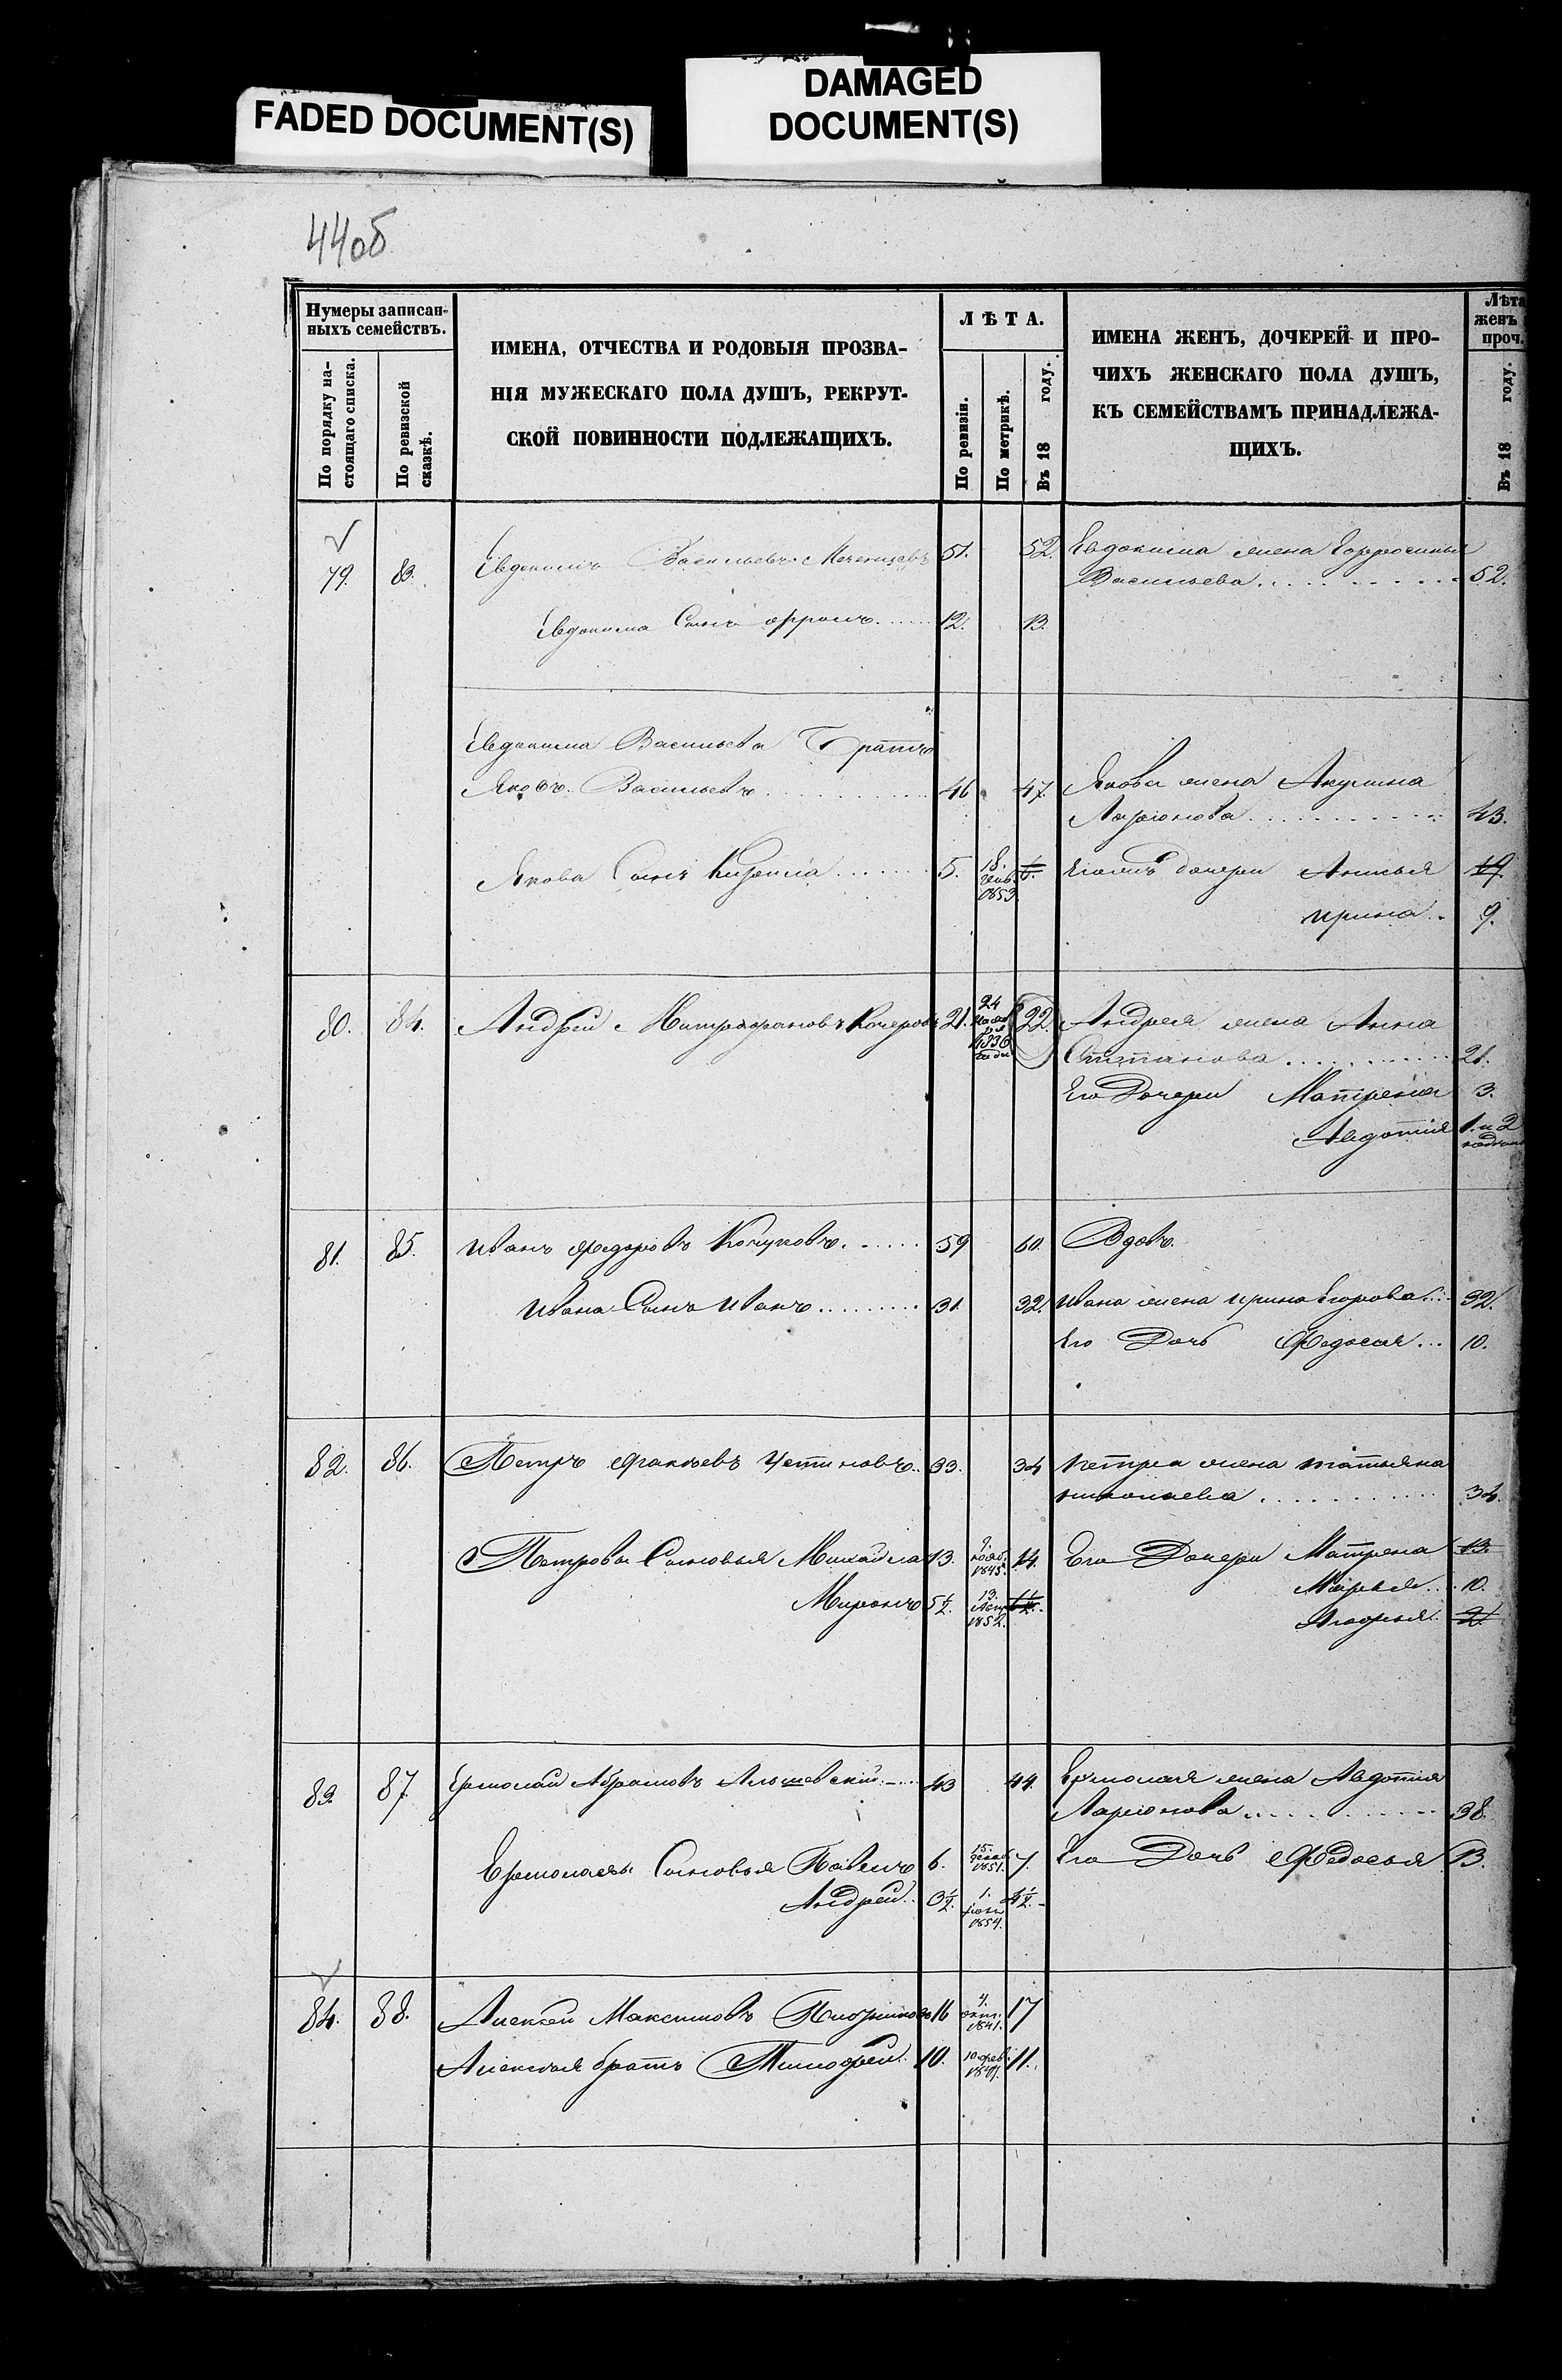 FADED DOCUMENT(S)
DAMAGED
DOCUMENT(S)
44об
Нумеры записан-
ныхъ семействъ.
По порядку на-
стоящаго списка.
По ревизской
сказкѣ.
ИМЕНА, ОТЧЕСТВА И РОДОВЫЯ ПРОЗВА-
НІЯ МУЖЕСКАГО ПОЛА ДУШЪ, РЕКРУТ-
СКОЙ ПОВИННОСТИ ПОДЛЕЖАЩИХЪ.
ЛѢТА.
По ревизіи.
По метрикѣ.
Въ 18 году.
ИМЕНА ЖЕНЪ, ДОЧЕРЕЙ И ПРО-
ЧИХЪ ЖЕНСКАГО ПОЛА ДУШЪ,
КЪ СЕМЕЙСТВАМЪ ПРИНАДЛЕЖА-
ЩИХЪ.
Лѣта
женъ
проч.
Въ 18 году.
79. 83. Евдокимъ Васильевъ 51. 52. Евдокима жена
Васильева 52.
Евдокима Сынъ 12. 13.
Евдокима Васильева Братъ
Яковъ Васильевъ 46 47. Якова жена Акулина
Ларіонова 43.
Якова Сынъ 5. 18. 1853 6. дочери Анисья 19.
Ирина 9.
80. 84. Андрей Митрофановъ Кочеровъ 21. 24 ноября 1836 года 22. Андрея жена Анна
Степанова 21.
Его Дочери Матрена 3.
Авдотия 1. и 2
81. 85. Иванъ Федоровъ 59 60. Вдовъ.
Ивана Сынъ Иванъ 31. 32. Ивана жена Ирина Егорова 32.
Его Дочь Федосья 10.
82. 86. Петръ Устиновъ 33. 34 Петра жена Татьяна
Николаева 34.
Петровы Сыновья Михайла 13. нояб. 1845. 14. Его Дочери Матрена 13.
Миронъ 5½. 13. 1852. 6½. Марья 10.
2.
83. 87. Ермолай Абрамовъ 43 44. Ермолая жена Авдотия
Ларіонова 38.
Ермолаевы Сыновья Павелъ 6. 15. 1851. 7. Его Дочь Федосья 13.
Андрей 3½. 1. 1854. 4½.
84. 88. Алексѣй Максимовъ 16 4. окт. 1841. 17
Алексѣя братъ Тимофей 10. 10 фев. 11.